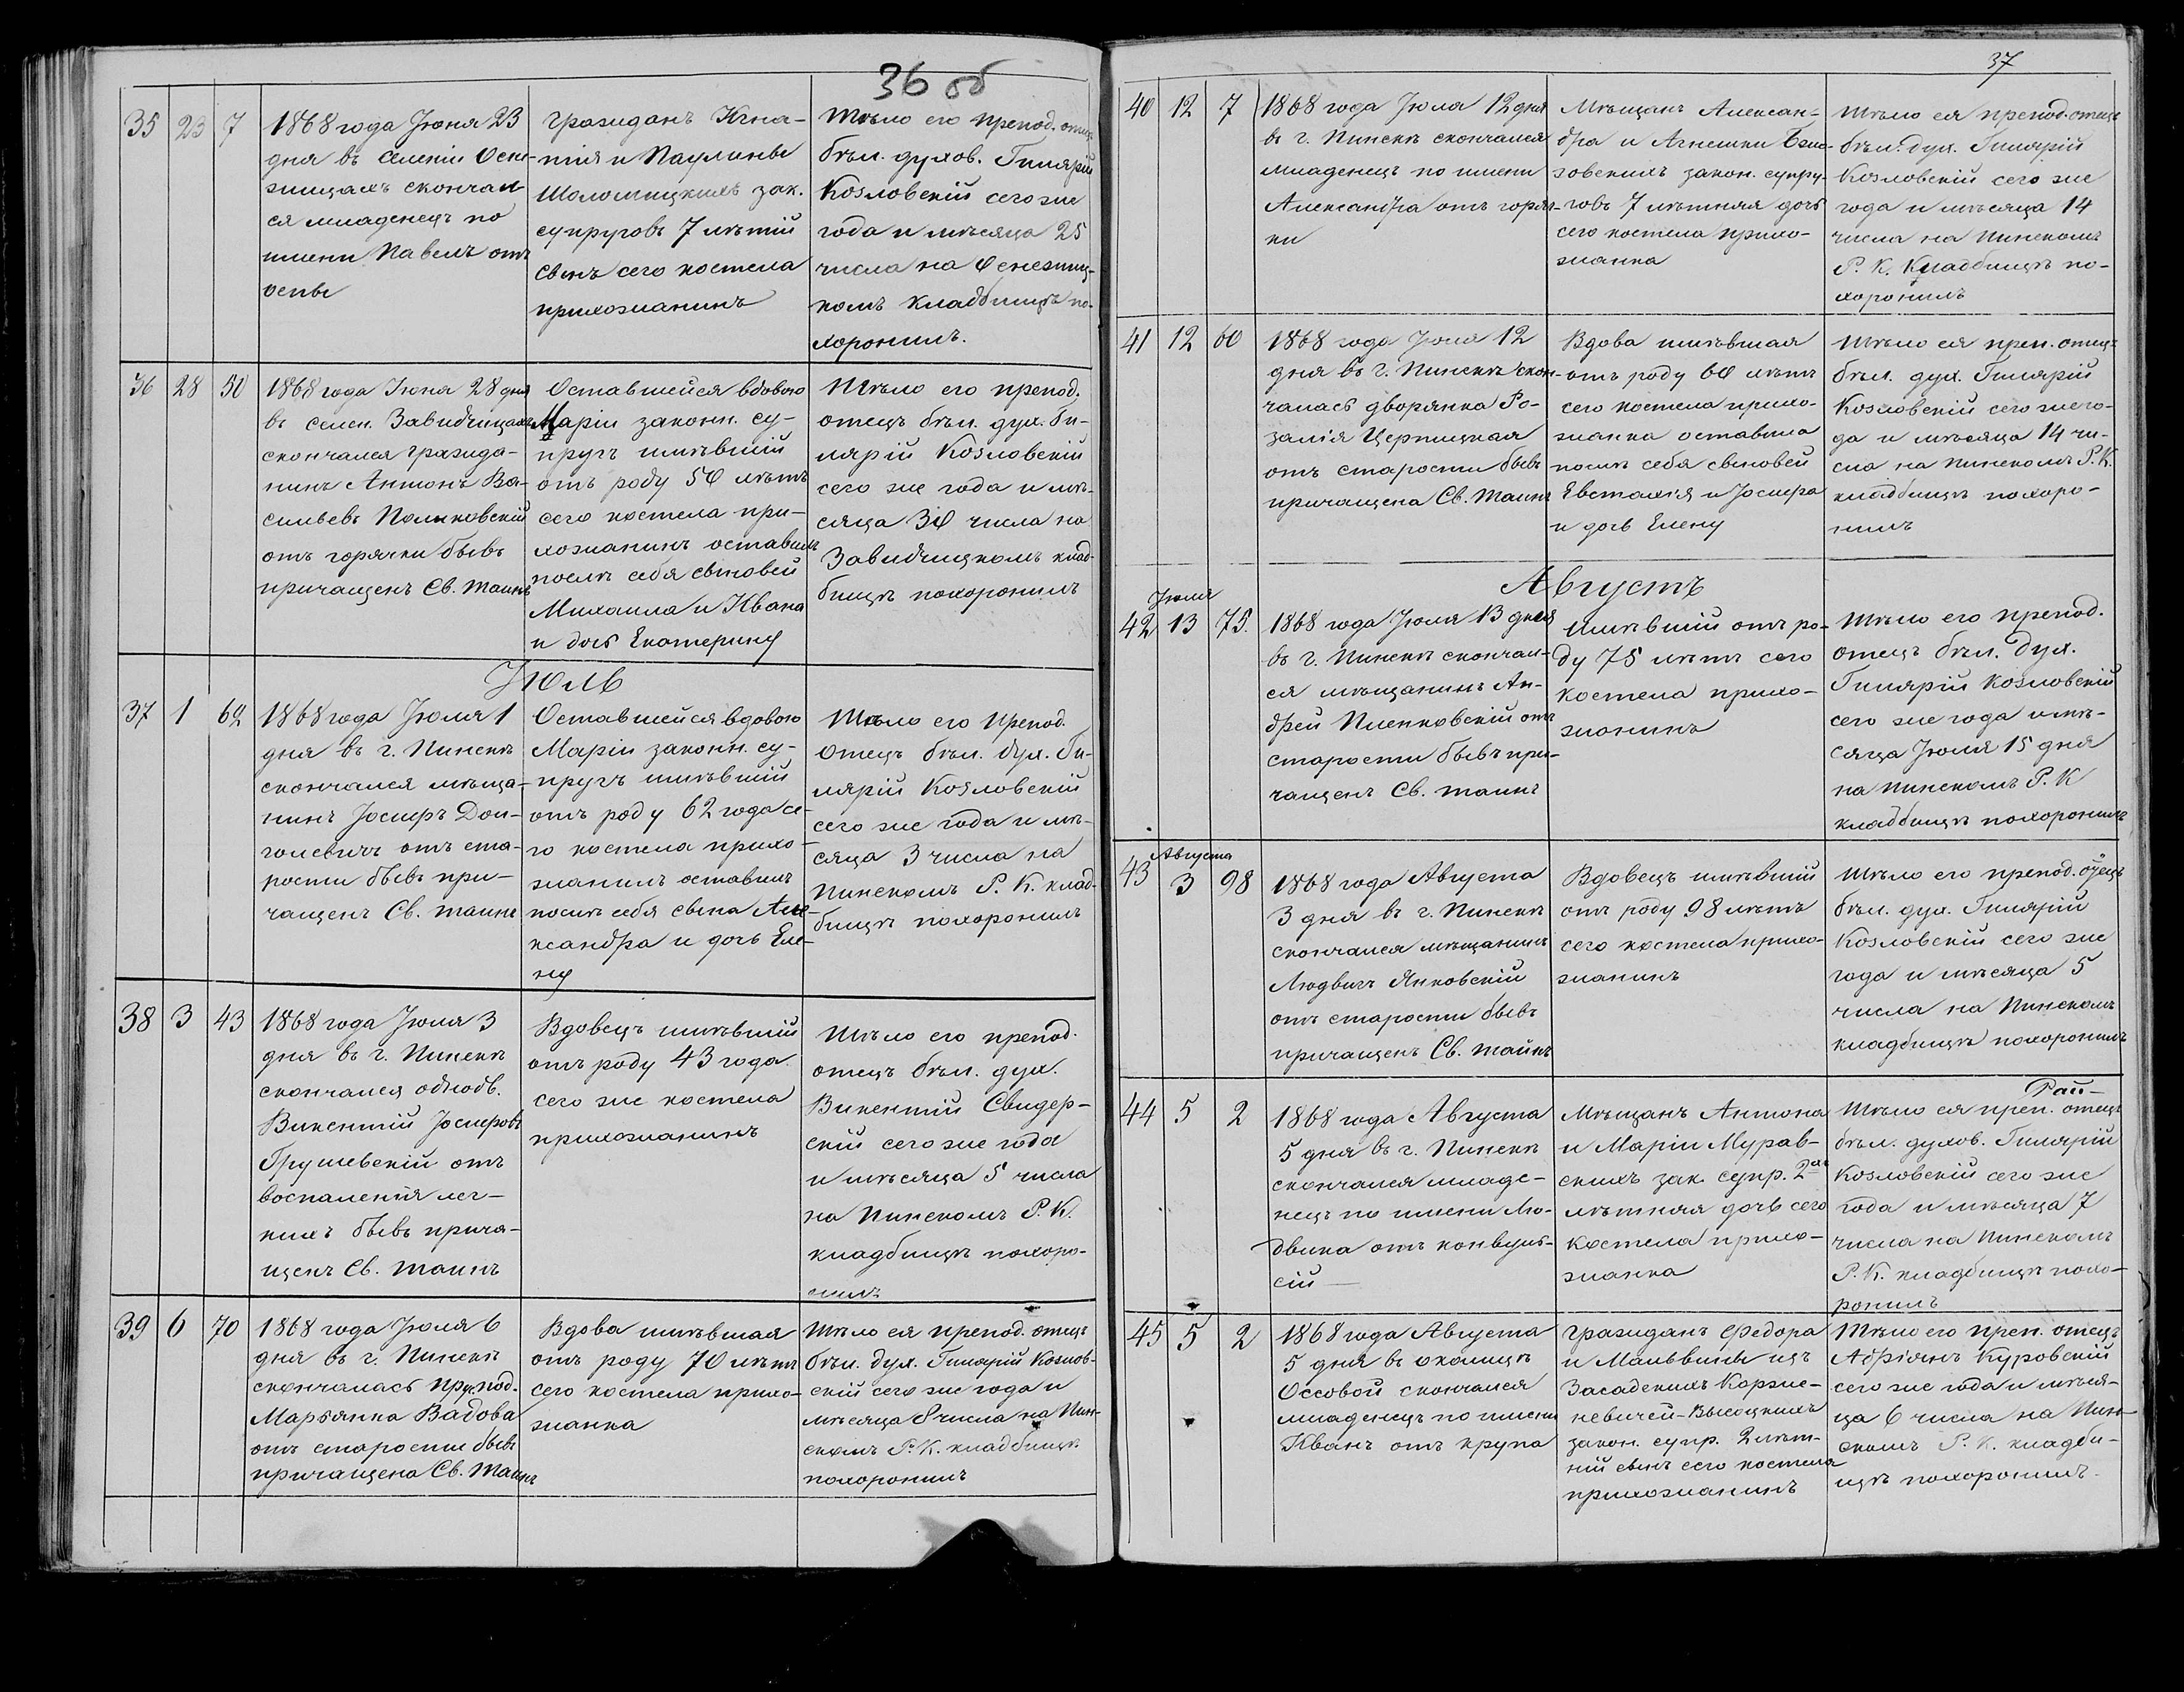 36 об
35 23 7
1868 года Іюня 23
дня въ селеніи Осне-
жицахъ скончал
ся младенецъ по
имени Павелъ отъ
оспы
гражданъ Игна-
тія и Паулины
Шоломицкихъ зак.
супруговъ 7 лѣтній
сынъ сего костела
прихожанинъ
Тѣло его препод. отец
бѣл. духов. Гилярій
Козловскій сего же
года и мѣсяца 25
числа на Оснежиц-
комъ кладбищѣ по-
хоронилъ.
36 28 50
1868 года Іюня 28 дня
въ селен. Завидчицахъ
скончался гражда-
нинъ Антонъ Ва-
сильевъ Полховскій
отъ горячки бывъ
причащенъ Св. Таинъ
Оставшейся вдовою
Маріи законн. су-
пругъ имѣвшій
отъ роду 50 лѣтъ
сего костела при-
хожанинъ оставилъ
послѣ себя сыновей
Михаила и Ивана
и дочь Екатерину
Тѣло его препод.
отецъ бѣл. дух. Ги-
лярій Козловскій
сего же года и мѣ-
сяца 30 числа на
Завидчицкомъ клад-
бищѣ похоронилъ
Іюль
37 1 62
1868 года Іюля 1
дня въ г. Пинскѣ
скончался мѣща-
нинъ Іосифъ Дон-
голевичъ отъ ста-
рости бывъ при-
чащенъ Св. Таинъ
Оставшейся вдовою
Маріи законн. су-
пругъ имѣвшій
отъ роду 62 года се-
го костела прихо-
жанинъ оставилъ
послѣ себя сына Але-
ксандра и дочь Еле-
ну
Тѣло его препод.
отецъ бѣл. дух. Ги-
лярій Козловскій
сего же года и мѣ-
сяца 3 числа на
Пинскомъ Р. К. клад-
бищѣ похоронилъ
38 3 43
1868 года Іюля 3
дня въ г. Пинскѣ
скончался однодв.
Викентій Іосифовъ
Грушевскій отъ
воспаленія лег-
кихъ бывъ прича-
щенъ Св. Таинъ
Вдовецъ имѣвшій
отъ роду 43 года
сего же костела
прихожанинъ
Тѣло его препод.
отецъ бѣл. дух.
Викентій Свидер-
скій сего же года
и мѣсяца 5 числа
на Пинскомъ Р. К.
кладбищѣ похоро-
нилъ
39 6 70
1868 года Іюля 6
дня въ г. Пинскѣ
скончалась
Марьянна Вадова
отъ старости бывъ
причащена Св. Таинъ
Вдова имѣвшая
отъ роду 70 лѣтъ
сего костела прихо-
жанка
Тѣло ея препод. отецъ
бѣл. дух. Гилярій Козлов-
скій сего же года и
мѣсяца 8 числа на Пин-
скомъ Р. К. кладбищѣ
похоронилъ
37
40 12 7
1868 года Іюля 12 дня
въ г. Пинскѣ скончался
младенецъ по имени
Александра отъ горяч-
ки
Мѣщанъ Алексан-
дра и Агнешки
закон. супру-
говъ 7 лѣтняя дочь
сего костела прихо-
жанка
Тѣло ея препод. отецъ
бѣл. дух. Гилярій
Козловскій сего же
года и мѣсяца 14
числа на Пинскомъ
Р. К. Кладбищѣ по-
хоронилъ
41 12 60
1868 года Іюля 12
дня въ г. Пинскѣ скон-
чалась дворянка Ро-
залія Церпицкая
отъ старости бывъ
причащена Св. Таинъ
Вдова имѣвшая
отъ роду 60 лѣтъ
сего костела прихо-
жанка оставила
послѣ себя сыновей
Евстахія и Іосифа
и дочь Елену
Тѣло ея преп. отецъ
бѣл. дух. Гилярій
Козловскій сего же го-
да и мѣсяца 14 чи-
сла на Пинскомъ Р. К.
кладбищѣ похоро-
нилъ
Августъ
Іюля
42 13 75.
1868 года Іюля 13 дня
въ г. Пинскѣ скончал-
ся мѣщанинъ Ан-
дрей Пленковскій отъ
старости бывъ при-
чащенъ Св. Таинъ
Имѣвшій отъ ро-
ду 75 лѣтъ сего
костела прихо-
жанинъ
Тѣло его препод.
отецъ бѣл. дух.
Гилярій Козловскій
сего же года и мѣ-
сяца Іюля 15 дня
на Пинскомъ Р. К
кладбищѣ похоронилъ
Августа
43 3 98
1868 года Августа
3 дня въ г. Пинскѣ
скончался мѣщанинъ
Людвигъ Янковскій
отъ старости бывъ
причащенъ Св. Таинъ
Вдовецъ имѣвшій
отъ роду 98 лѣтъ
сего костела прихо-
жанинъ
Тѣло его препод. отецъ
бѣл. дух. Гилярій
Козловскій сего же
года и мѣсяца 5
числа на Пинскомъ
кладбищѣ похоронилъ
44 5 2
1868 года Августа
5 дня въ г. Пинскѣ
скончался младе-
нецъ по имени Лю-
двика отъ конвуль-
сій
Мѣщанъ Антона
и Маріи Мурав-
скихъ зак. супр. 2хъ
лѣтняя дочь сего
костела прихо-
жанка
Тѣло ея преп. отецъ
бѣл. духов. Гилярій
Козловскій сего же
года и мѣсяца 7
числа на Пинскомъ
Р. К. кладбищѣ похо-
ронилъ
45 5 2
1868 года Августа
5 дня въ околицѣ
Оссовой скончался
младенецъ по имени
Иванъ отъ крупа
гражданъ Федора
и Мальвины изъ
Засадскихъ Корже-
невичей-Высоцкихъ
закон. супр. 2 лѣт-
ній сынъ сего костела
прихожанинъ
Тѣло его преп. отецъ
Адріянъ Куровскій
сего же года и мѣся-
ца 6 числа на Пин-
скомъ Р. К. кладби-
щѣ похоронилъ.